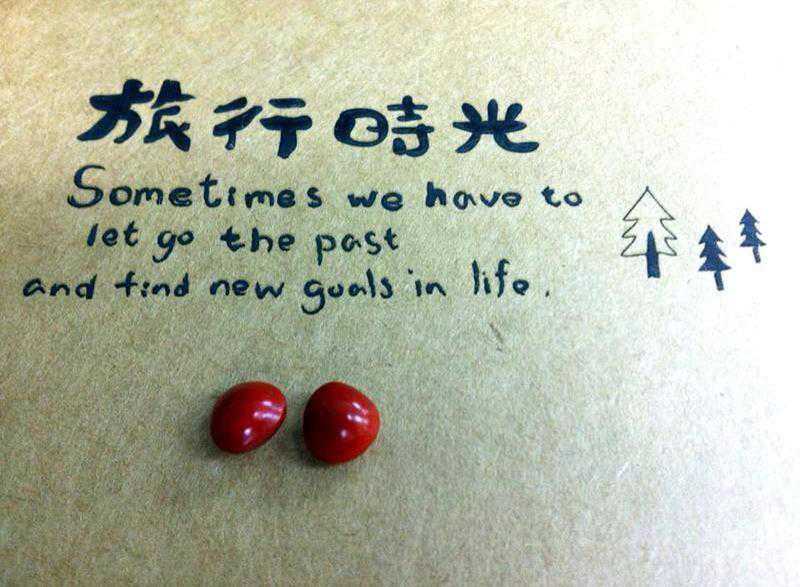 旅行時光
Sometimes we have to
let go the past
and find new goals in life.